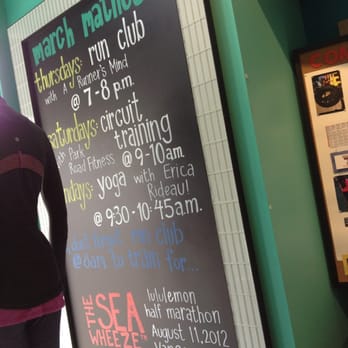 march
thursdays: run club
with A Runner's Mind
@ 7-8 p.m.
saturdays: circuit
training
Park
Road Fitness @ 9-10am
yoga with Erica
Rideau!
@ 9:30-10:45a.m.
run club
@ 8am to train for...
THE SEA WHEEZE
lululemon
half marathon
August 11, 2012